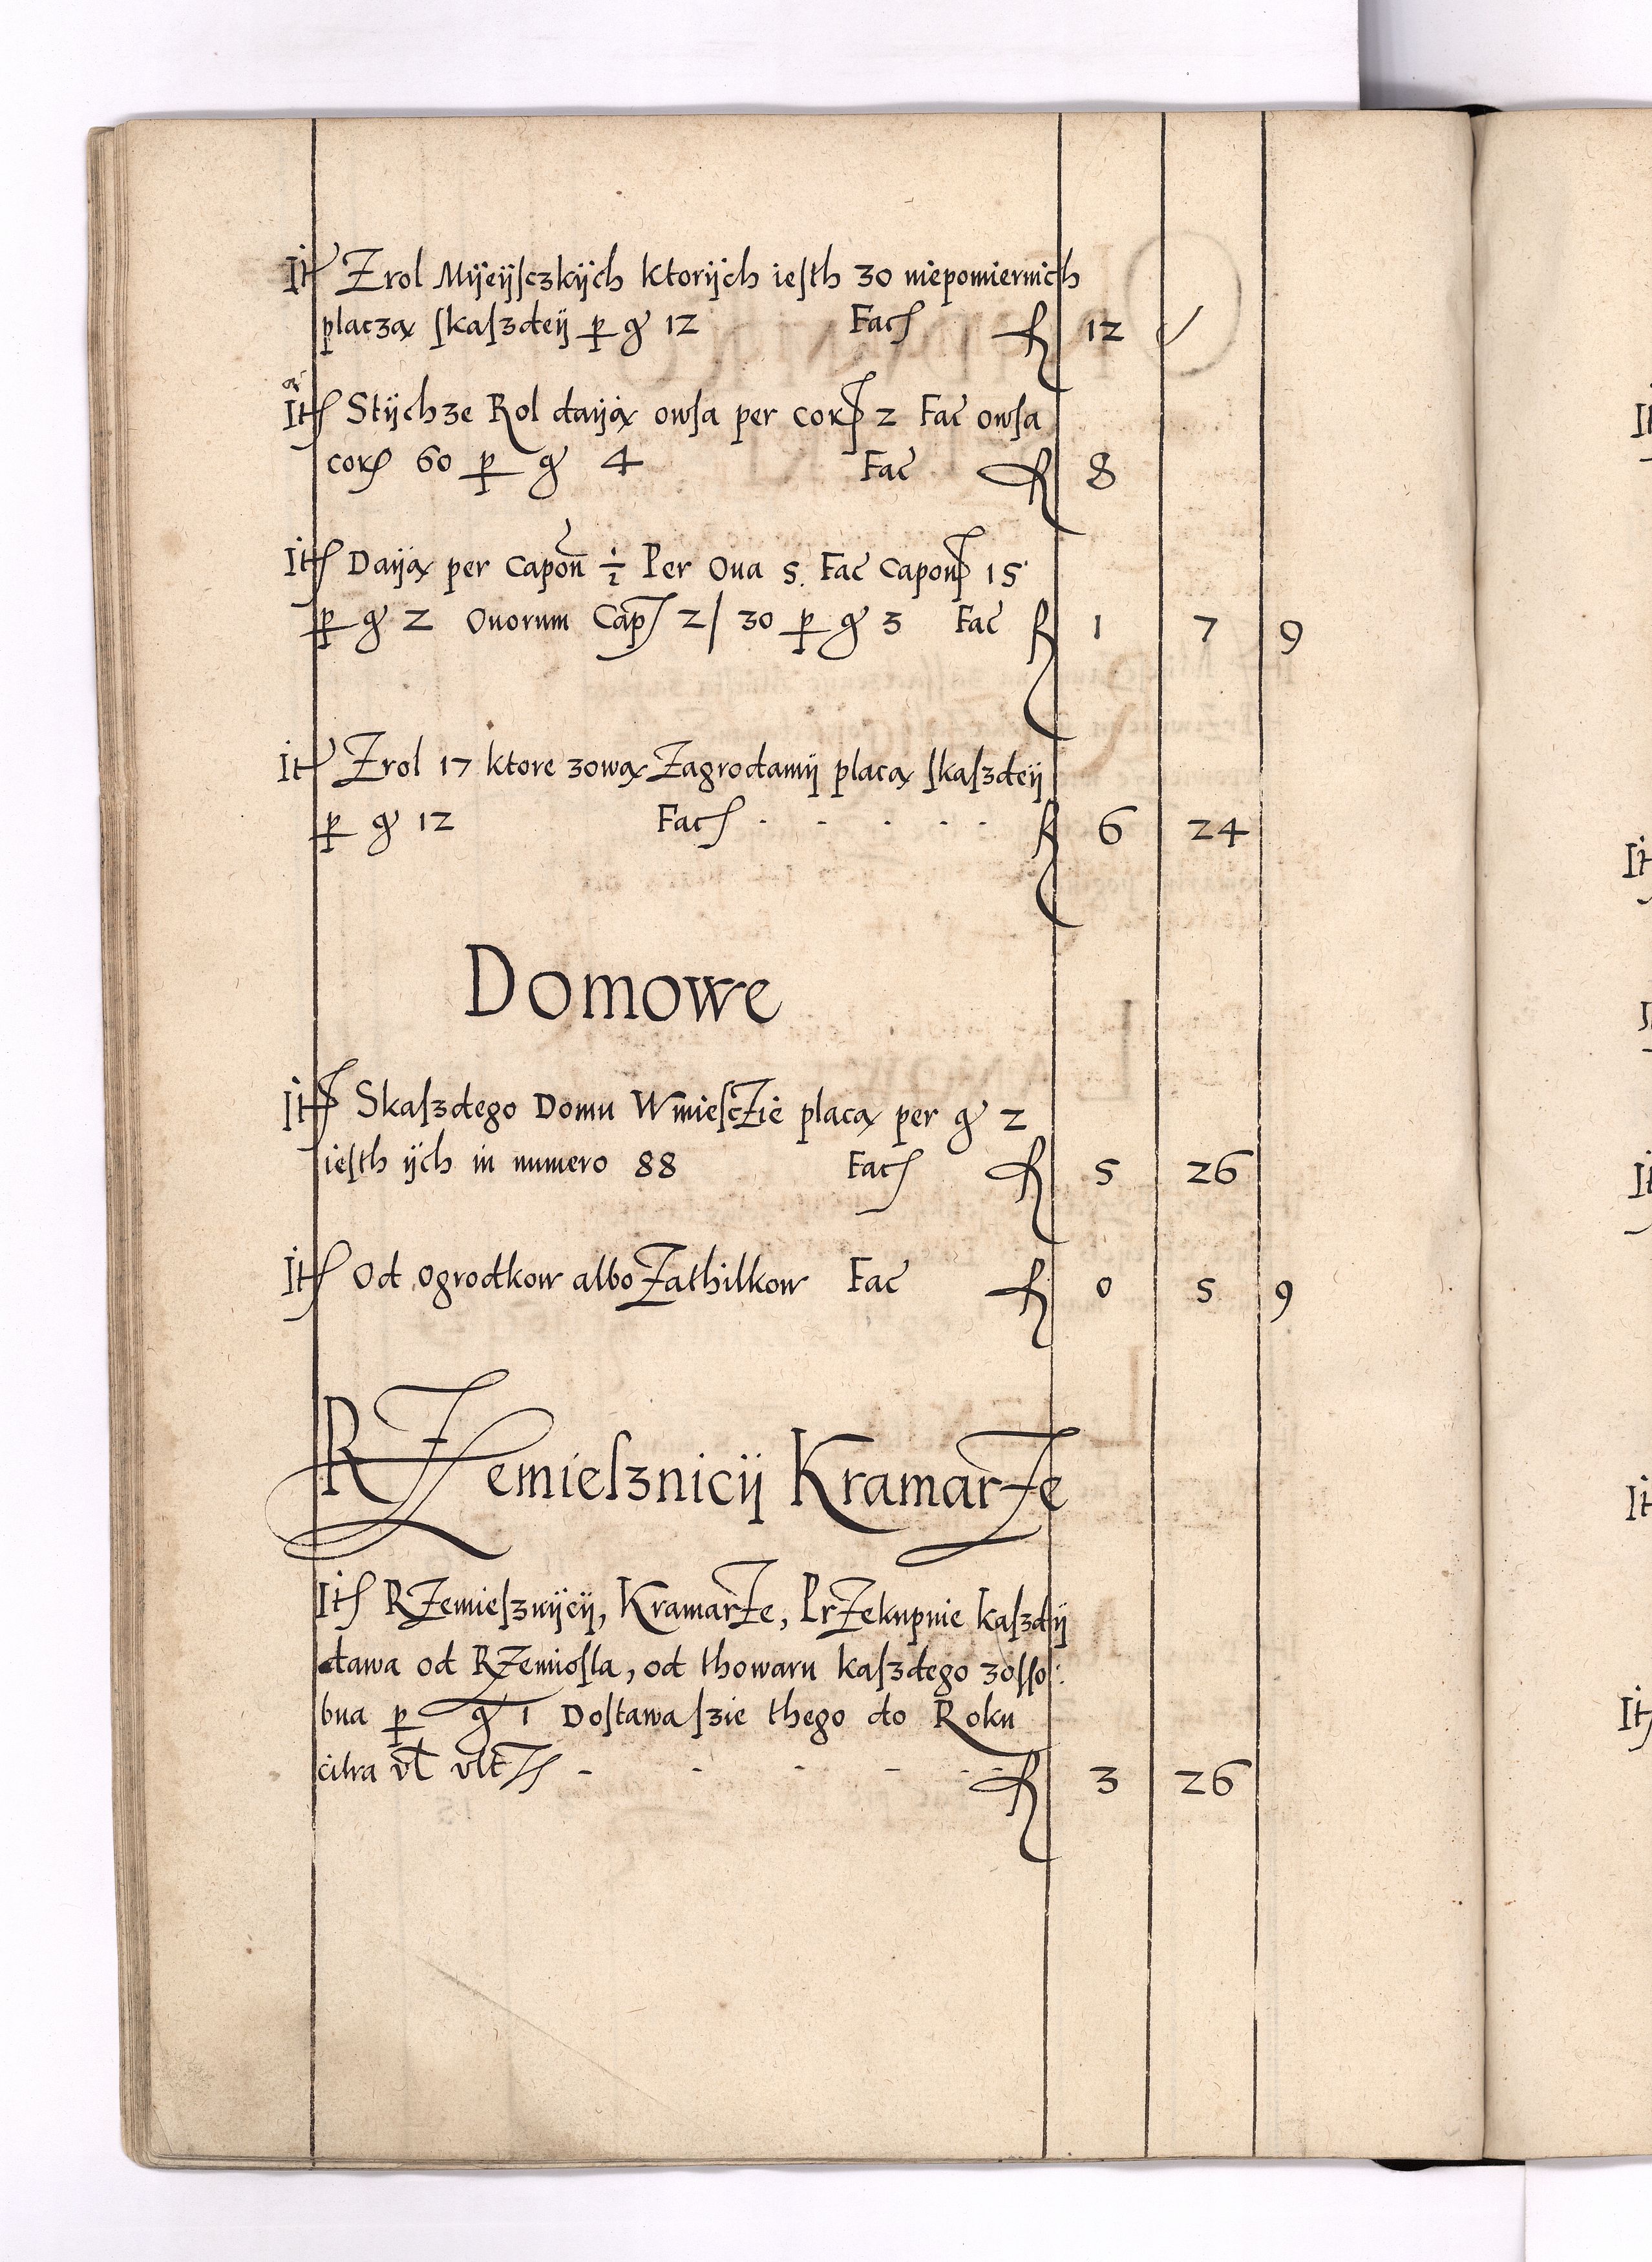 It Zrol Mÿeÿſczkÿch ktorÿch ieſth 30 niepomiernich
płaczą ſkaſzdeÿ p gͬ 12 Fac fl 12
It Stÿchze Rol daÿą owſa per cor 2 Fac owſa
cor 60 p gͬ 4 Fac fl 8
It Daÿą per Capon ½ Per Oua 5. Fac Capon 15
p gͬ 2 Ouorum Cap 2/30 p gͬ 3 Fac fl 1 7 9
It Zrol 17 ktore zową Zagrodamÿ placą ſkaſzdeÿ
p gͬ 12 Fac . - . - - fl 6 24
Domowe
It Skaſzdego Domu Wmieſczie placą per gͬ 2
ieſth ÿch in numero 88 Fac fl 5 26
It Od ogrodkow albo Zathilkow Fac fl 0 5 9
RZemieſznicÿ KramarZe
It RZemieſznÿcÿ, KramarZe, PrZekupnie kaſzdÿ
dawa od RZemioſla, od thowaru kaſzdego zoſſo:
bna p gͬ 1 Doſtawa ſzie thego do Roku
citra vl vlt - - - - - fl 3 26